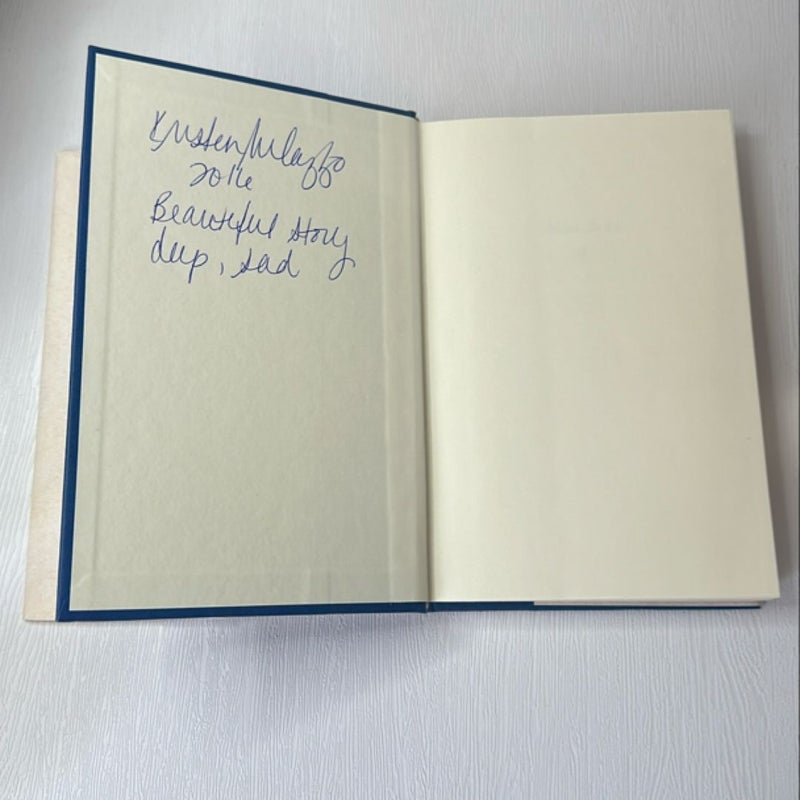 Kristen Milazzo
2016
Beautiful story
deep, sad